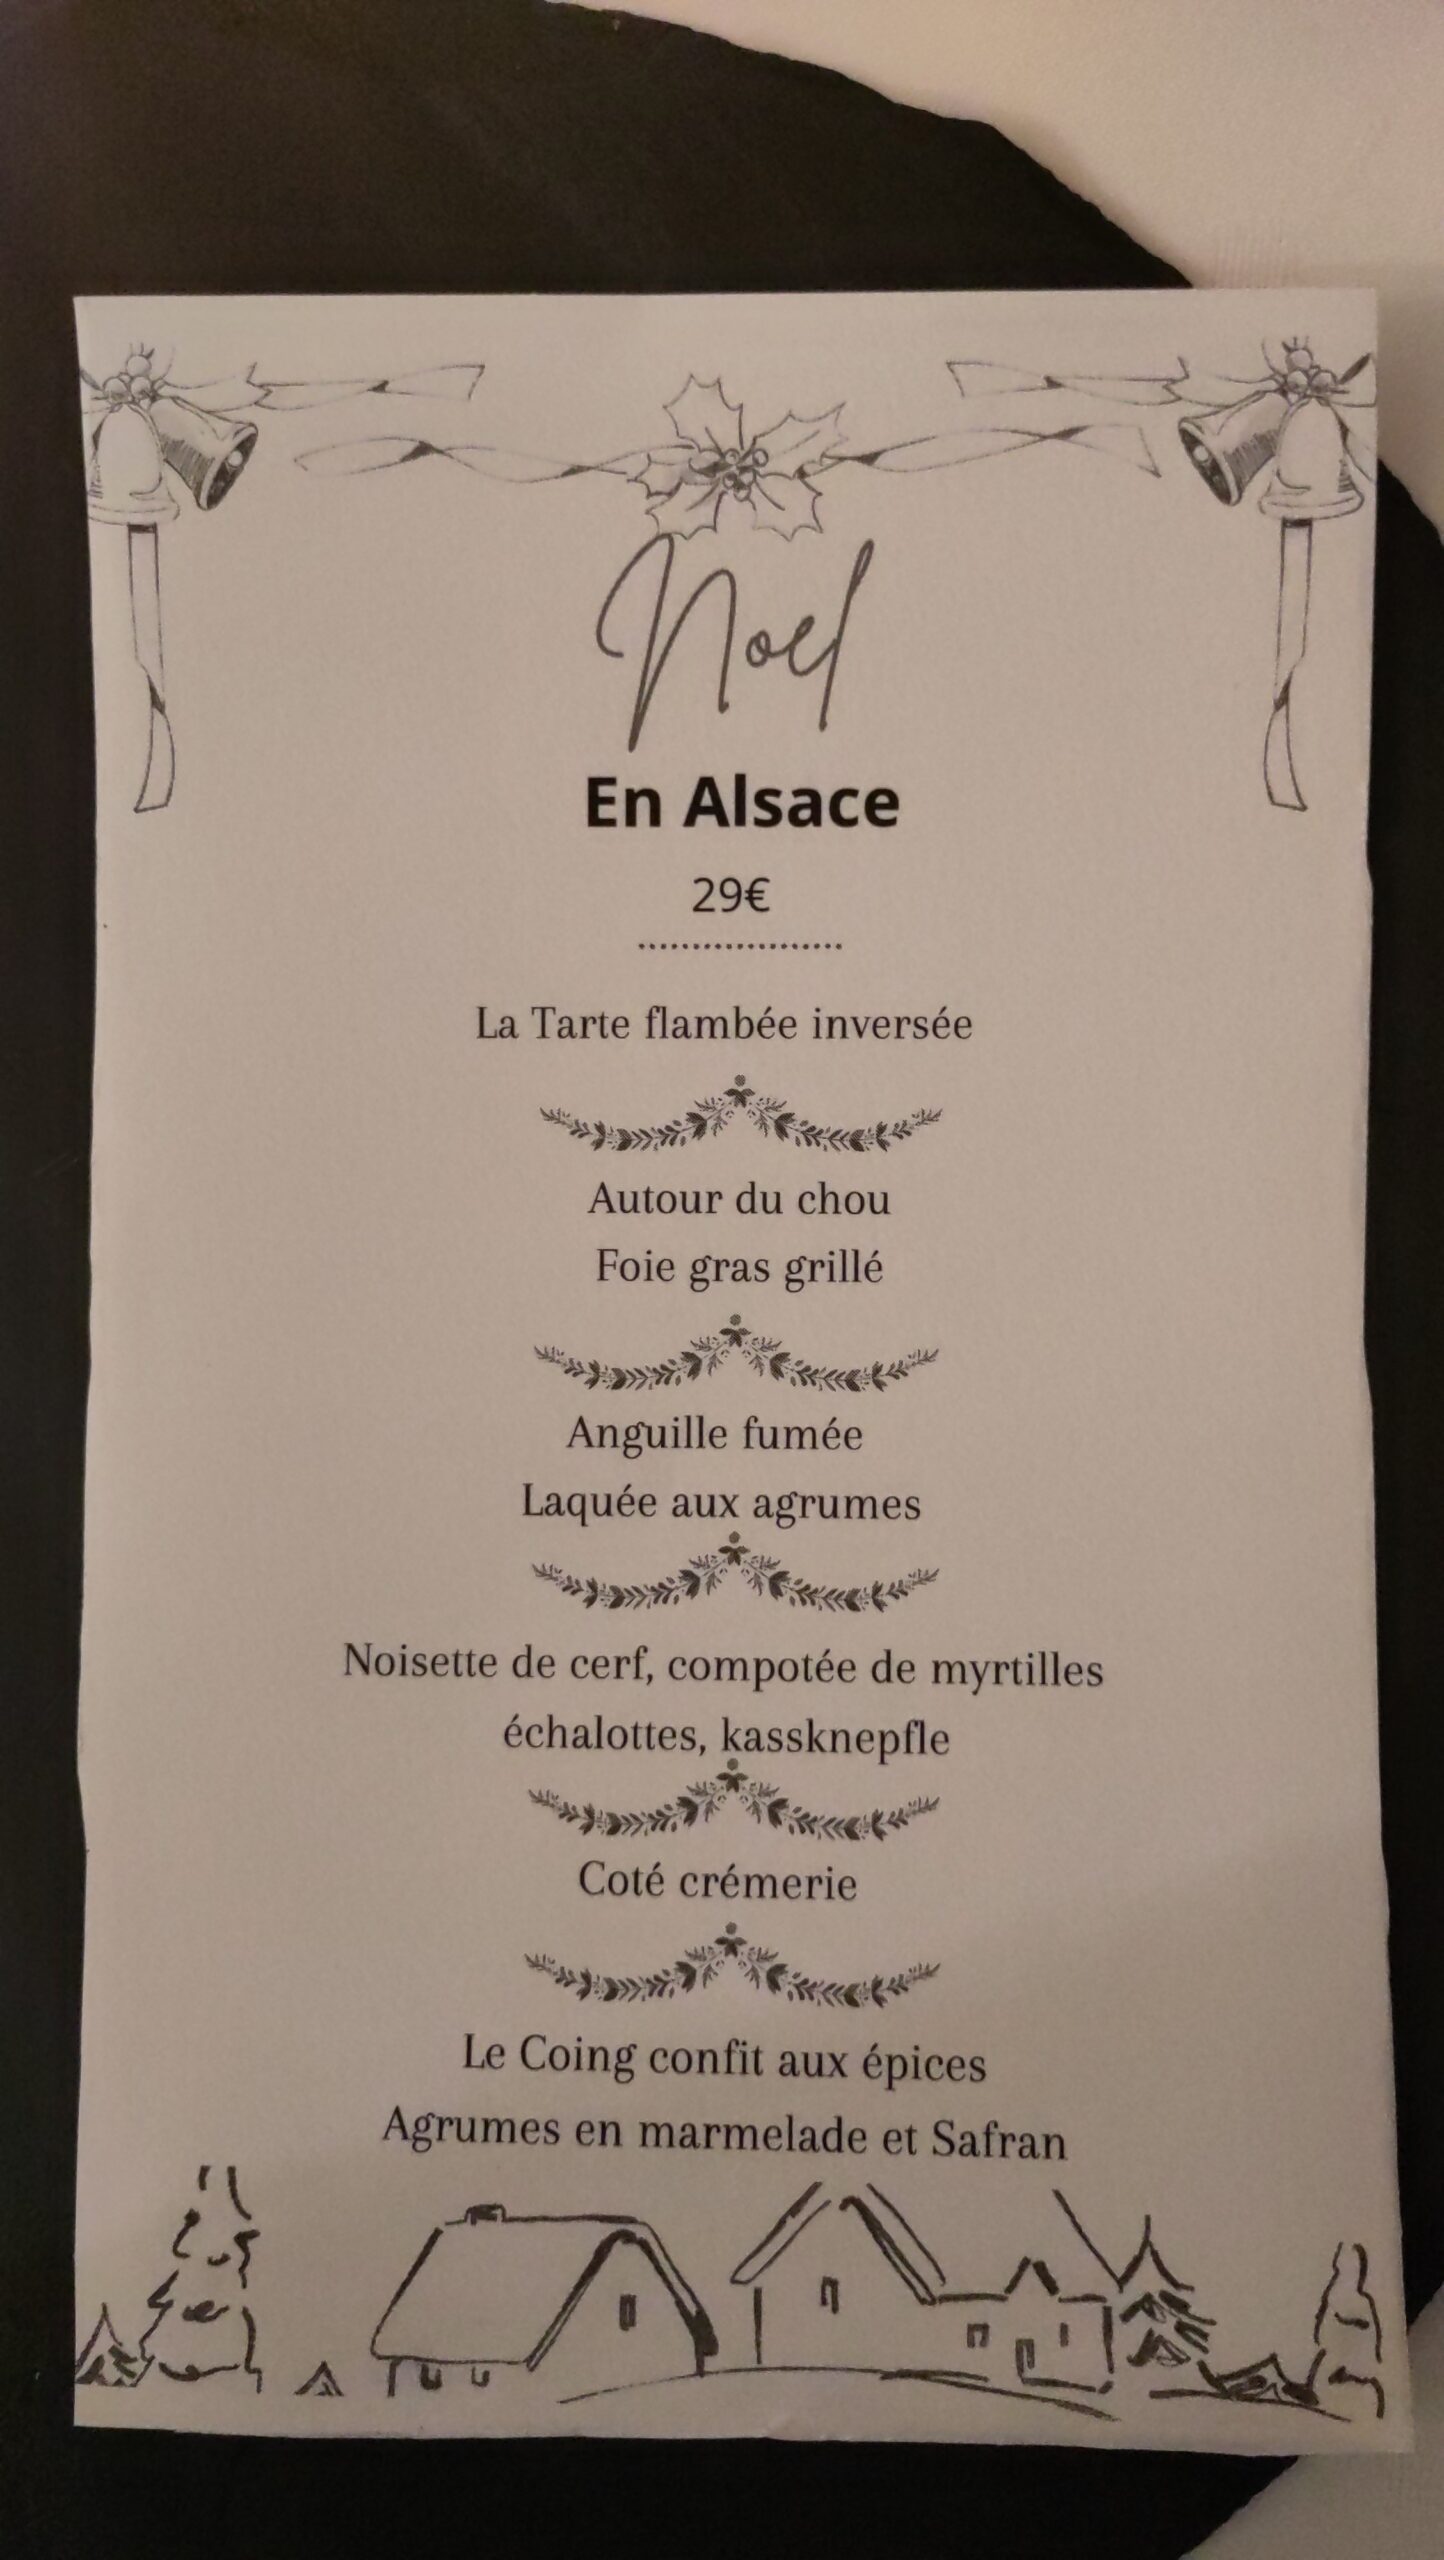 Noel
En Alsace
29€
La Tarte flambée inversée
Autour du chou
Foie gras grillé
Anguille fumée
Laquée aux agrumes
Noisette de cerf, compotée de myrtilles
échalottes, kassknepfle
Coté crémerie
Le Coing confit aux épices
Agrumes en marmelade et Safran